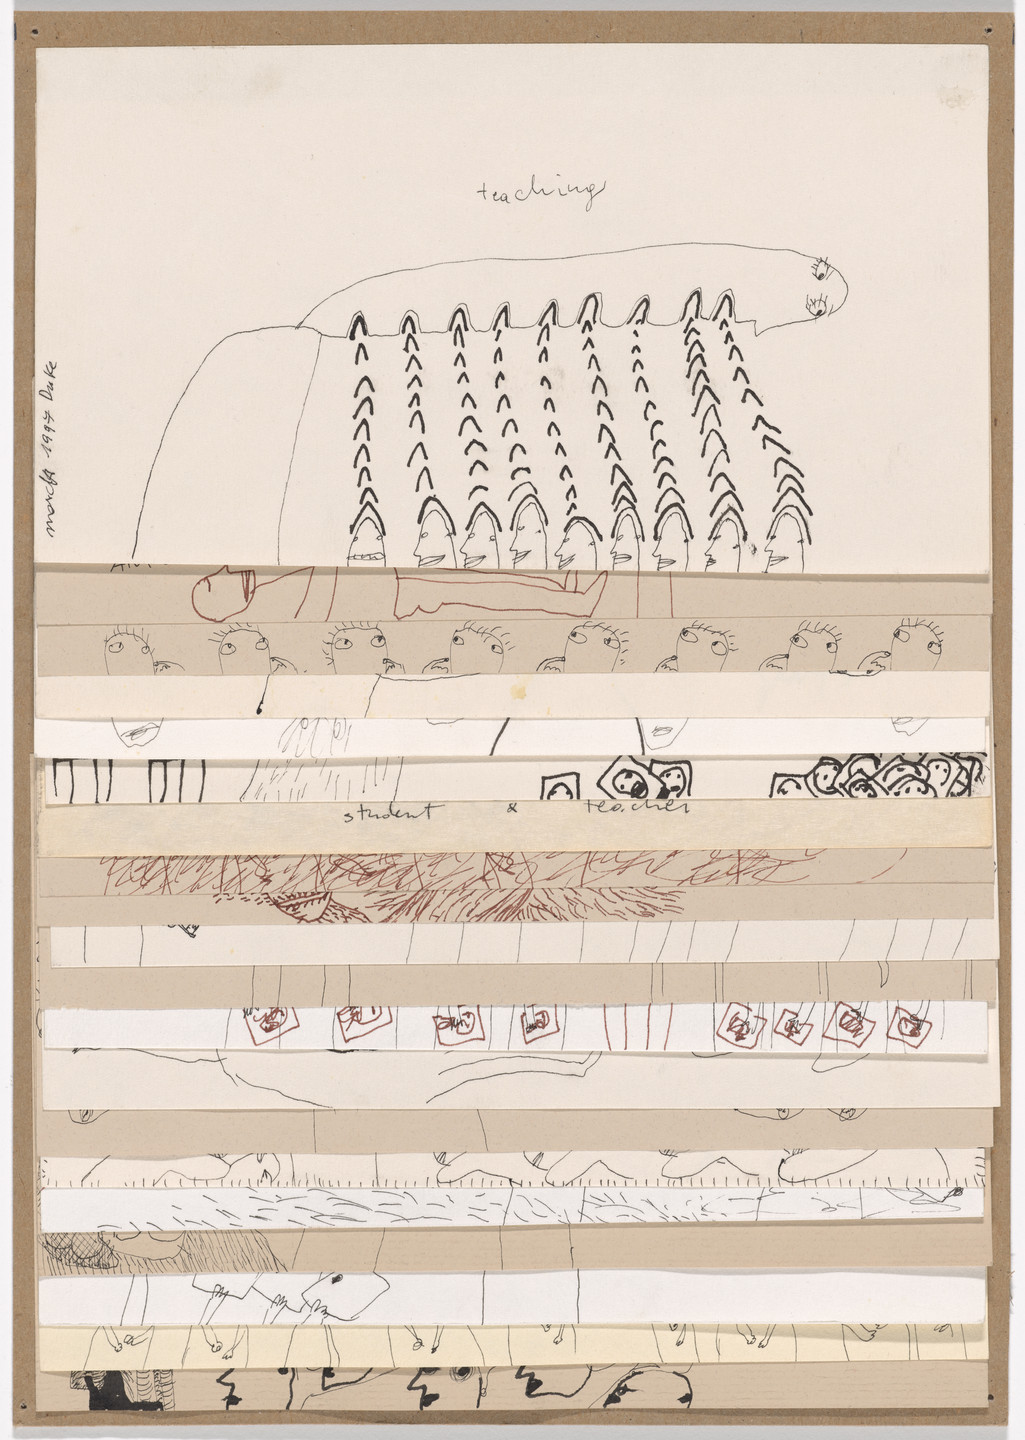 teaching
march 1997 Duke
student & teacher